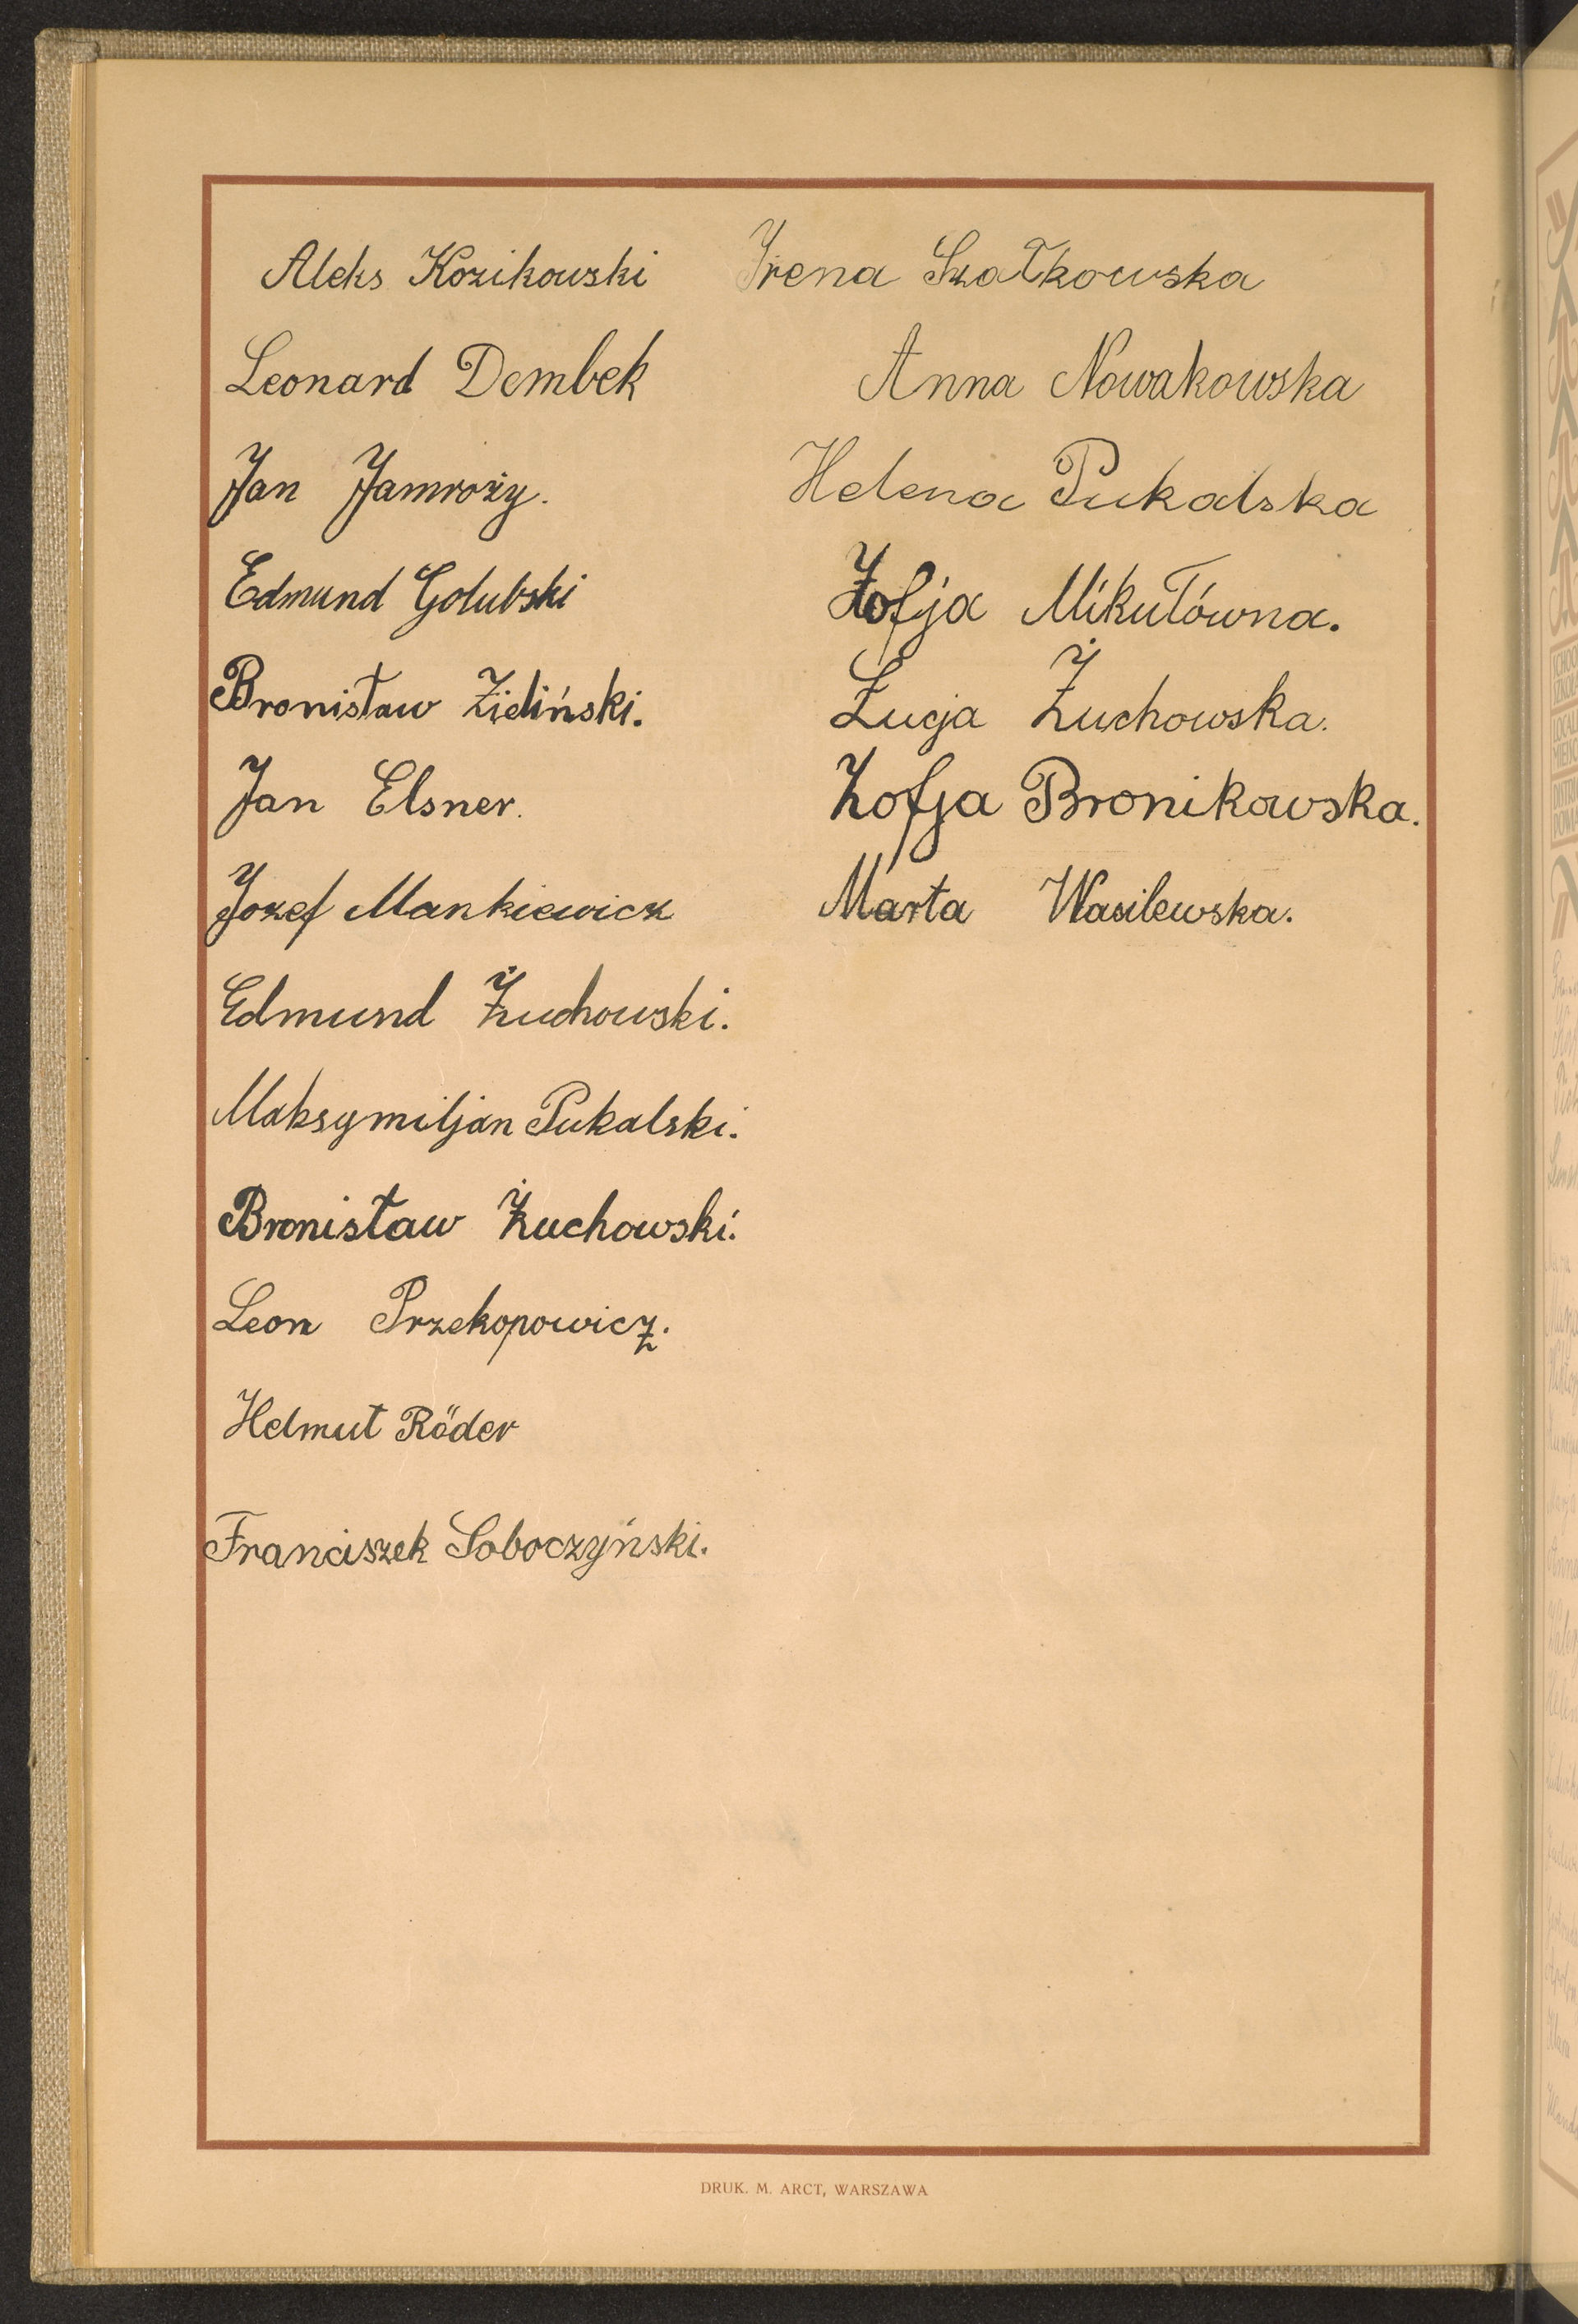 Aleks Kozikowski
Leonard Dembek
Jan Jamroży.
Edmund Golubski
Bronisław Zieliński.
Jan Elsner.
Jozef Mankiewicz
Edmund Żuchowski.
Maksymiljan Pukalski.
Bronisław Żuchowski.
Leon Przekopowicz.
Helmut Röder
Franciszek Soboczyński.
Irena Szałkowska
Anna Nowakowska
Helena Pukalska
Zofja Mikułówna.
Łucja Żuchowska.
Zofja Bronikowska.
Marta Wasilewska.
DRUK. M. ARCT, WARSZAWA